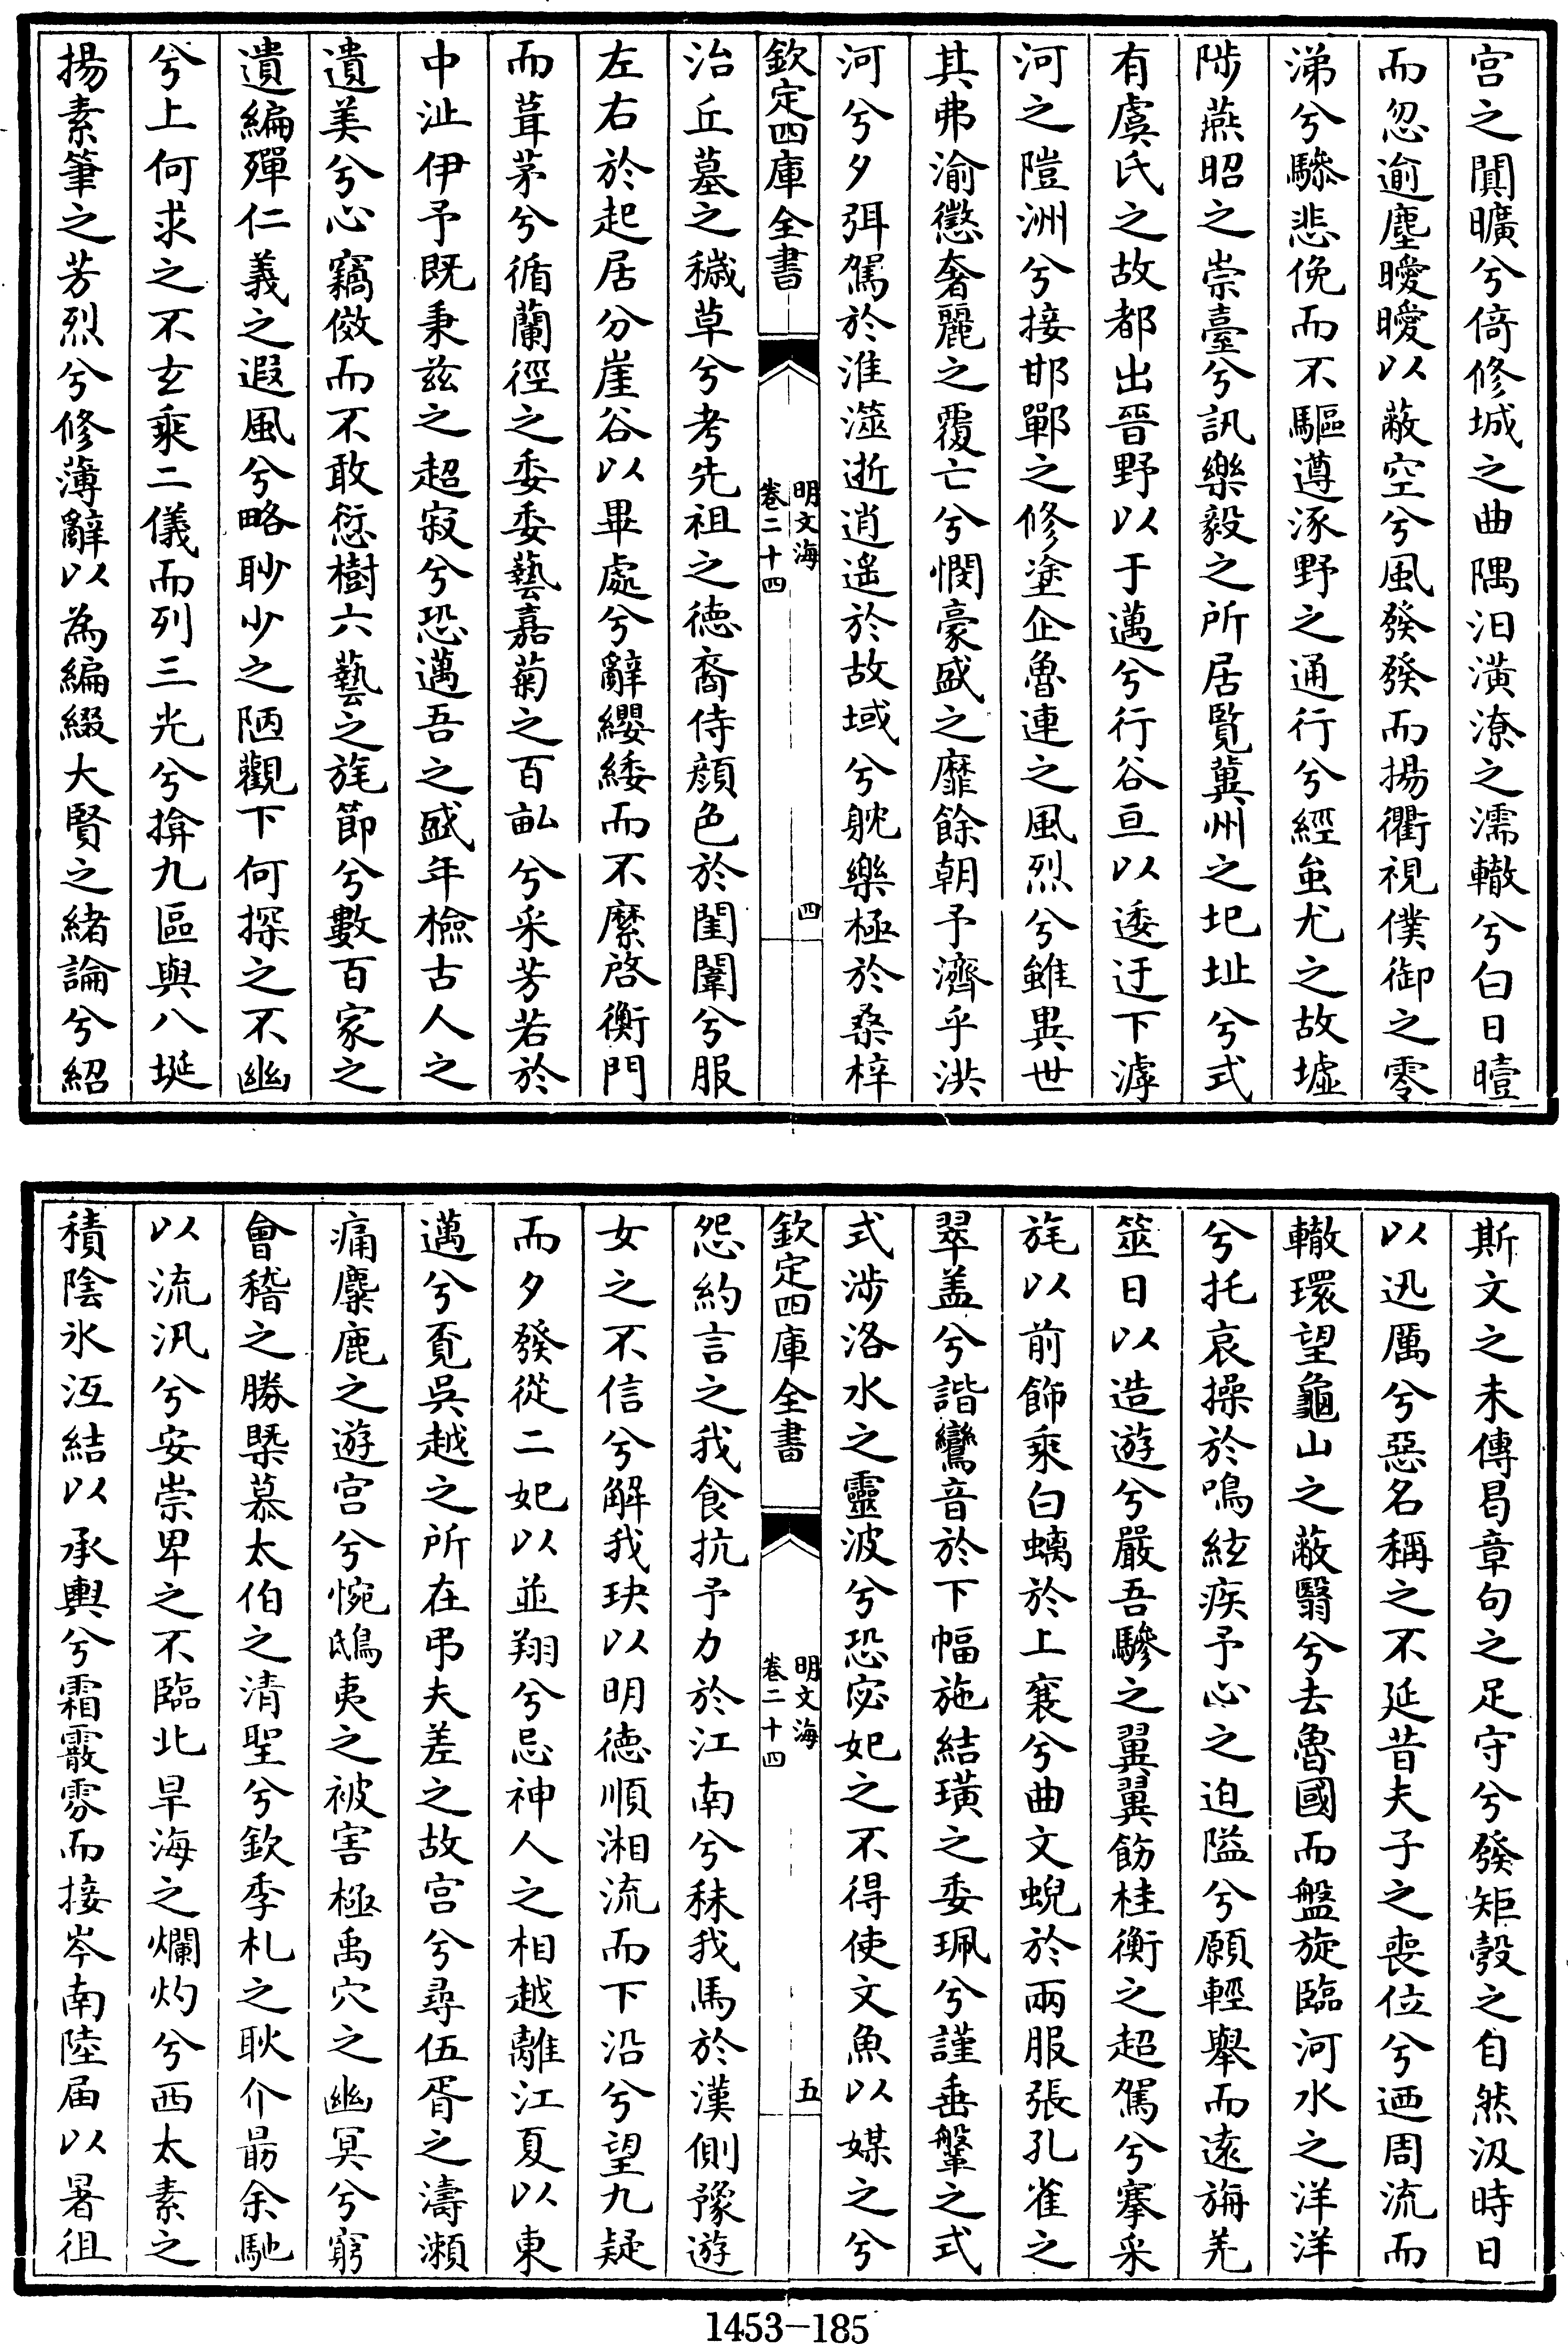 宫之闃曠兮倚修城之曲隅汨潢潦之濡轍兮白日曀
而忽逾塵曖曖以蔽空兮風發發而揚衢視僕御之零
涕兮驂悲俛而不驅遵涿野之通行兮經蚩尤之故墟
陟燕昭之崇臺兮訊樂毅之所居覽冀州之圯址兮式
有虞氏之故都出晉野以于邁兮行谷亘以逶迂下滹
河之隑洲兮接邯鄲之修塗企魯連之風烈兮雖異世
其弗渝懲奢麗之覆亡兮憫豪盛之靡餘朝予濟乎洪
河兮夕弭駕於淮澨逝逍遙於故域兮躭樂極於桑梓
欽定四庫全書
明文海
卷二十四
四
治丘墓之穢草兮考先祖之德裔侍顔色於闈闥兮服
左右於起居分崖谷以畢處兮辭纓緌而不縻啓衡門
而葺茅兮循蘭徑之委委藝嘉菊之百畆兮采芳若於
中沚伊予既秉兹之超寂兮恐邁吾之盛年檢古人之
遺美兮心竊傚而不敢愆樹六藝之旄節兮數百家之
遺編殫仁義之遐風兮略眇少之陋觀下何探之不幽
兮上何求之不玄乘二儀而列三光兮揜九區與八埏
揚素筆之芳烈兮修薄辭以為編綴大賢之緒論兮紹
斯文之未傳曷章句之足守兮發矩彀之自然汲時日
以迅厲兮惡名稱之不延昔夫子之喪位兮迺周流而
轍環望龜山之蔽翳兮去魯國而盤旋臨河水之洋洋
兮托哀操於鳴絃疾予心之迫隘兮願輕舉而遠旃羌
筮日以造遊兮嚴吾驂之翼翼飭桂衡之超駕兮搴采
旄以前飾乘白螭於上襄兮曲文蜺於兩服張孔雀之
翠盖兮諧鸞音於下幅施結璜之委珮兮謹垂鞶之式
式涉洛水之靈波兮恐宓妃之不得使文魚以媒之兮
欽定四庫全書
明文海
卷二十四
五
怨約言之我食抗予力於江南兮秣我馬於漢側豫遊
女之不信兮解我玦以明德順湘流而下沿兮望九疑
而夕發從二妃以並翔兮忌神人之相越離江夏以東
邁兮覔吳越之所在弔夫差之故宫兮尋伍胥之濤瀨
痛麋鹿之遊宫兮惋鴟夷之被害極禹穴之幽冥兮窮
會稽之勝槩慕太伯之清聖兮欽季札之耿介朂余馳
以流汎兮安崇卑之不臨北旱海之爛灼兮西太素之
積陰氷沍結以承輿兮霜霰雰而接岑南陸届以暑徂
1453—185